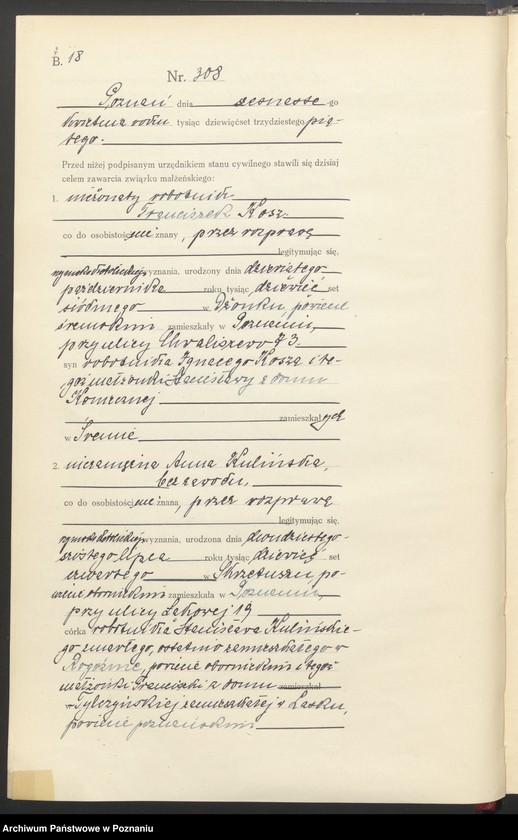 B. 18
Nr. 308
Poznań dnia szesnastego
kwietnia roku tysiąc dziewięćset trzydziestego pią-
tego.
Przed niżej podpisanym urzędnikiem stanu cywilnego stawili się dzisiaj
celem zawarcia związku małżeńskiego:
1. nieżonaty robotnik
Franciszek Kosz
co do osobistości nie znany, przez rozprawę
legitymując się,
rzymskokatolickiego wyznania, urodzony dnia dziewiątego
października roku tysiąc dziewięć set
siódmego w Dżonku, powiecie
śremskim zamieszkały w Poznaniu,
przy ulicy Chwaliszewo 73
syn robotnika Ignacego Kosza i te-
goż małżonki Stanisławy z domu
Koniecznej
zamieszkałych
w Śremie
2. niezamężna Anna Kulińska,
bez zawodu,
co do osobistości nie znana, przez rozprawę
legitymując się,
rzymskokatolickiego wyznania, urodzona dnia dwudziestego
szóstego lipca roku tysiąc dziewięć set
czwartego w Skrzetuszu po-
wiecie obornickim zamieszkała w Poznaniu,
przy ulicy Łąkowej 19
córka robotnika Stanisława Kulińskie-
go zmarłego, ostatnio zamieszkałego w
Rogoźnie, powiecie obornickim i tegoż
małżonki Franciszki z domu zamieszkał
Tylczyńskiej zamieszkałej w Lasku,
powiecie poznańskim
Archiwum Państwowe w Poznaniu